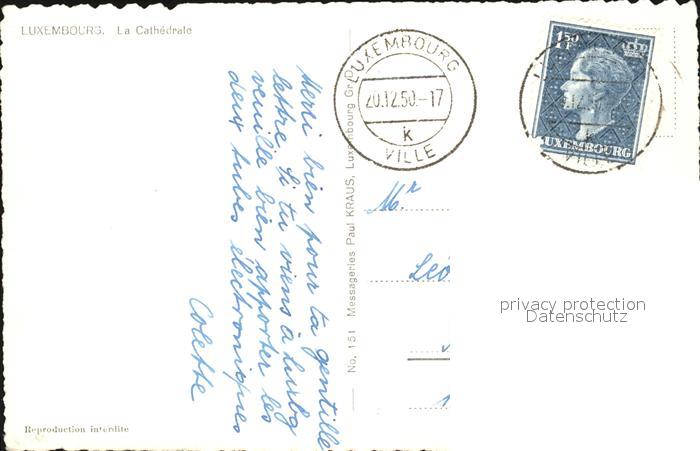 LUXEMBOURG. La Cathédrale
Merci bien pour ta gentille
lettre. Si tu viens à Luxbg
veuille bien apporter les
deux tubes électroniques
Colette
Reproduction interdite
No. 151 Messageries Paul KRAUS, Luxembourg Gr
LUXEMBOURG
20.12.50.-17
k
VILLE
1.50
F
LUXEMBOURG
Mr
Léo
privacy protection
Datenschutz